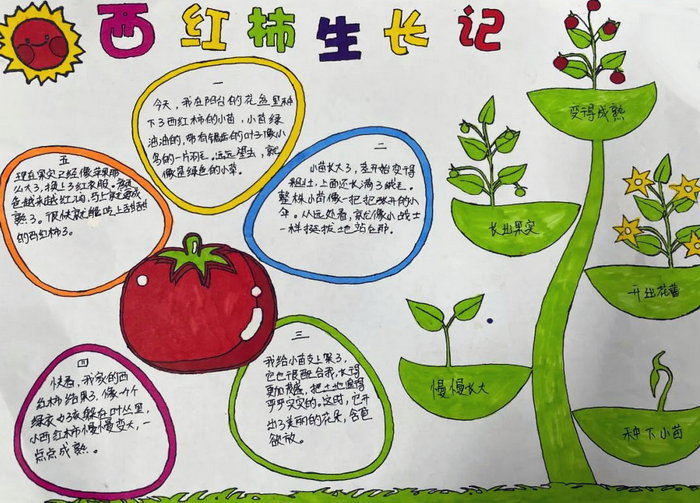 西红柿生长记
一
今天，我在阳台的花盆里种
下了西红柿的小苗，小苗绿
油油的，带有锯齿的叶子像小
鸟的一片羽毛。远远望去，就
像是绿色的小草。
二
小苗长大了，茎开始变得
粗壮，上面还长满了绒毛。
整株小苗像一把把张开的小
伞。从远处看，就像小战士
一样挺拔地站在那。
三
我给小苗支上架了，
它也很配合我，长得
更加茂盛，把土地遮得
严严实实的。这时，它开
出了美丽的花朵，含苞
欲放。
四
快看，我家的西
红柿结果了，像个个
绿衣的孩躲在叶丛里，
小西红柿慢慢变大，一
点点成熟。
五
现在果实已经像苹果那
么大了，换上了红衣服。颜
色越来越红润，马上就要成
熟了。很快就能吃上甜甜
的西红柿了。
变得成熟
长出果实
开出花蕾
慢慢长大
种下小苗